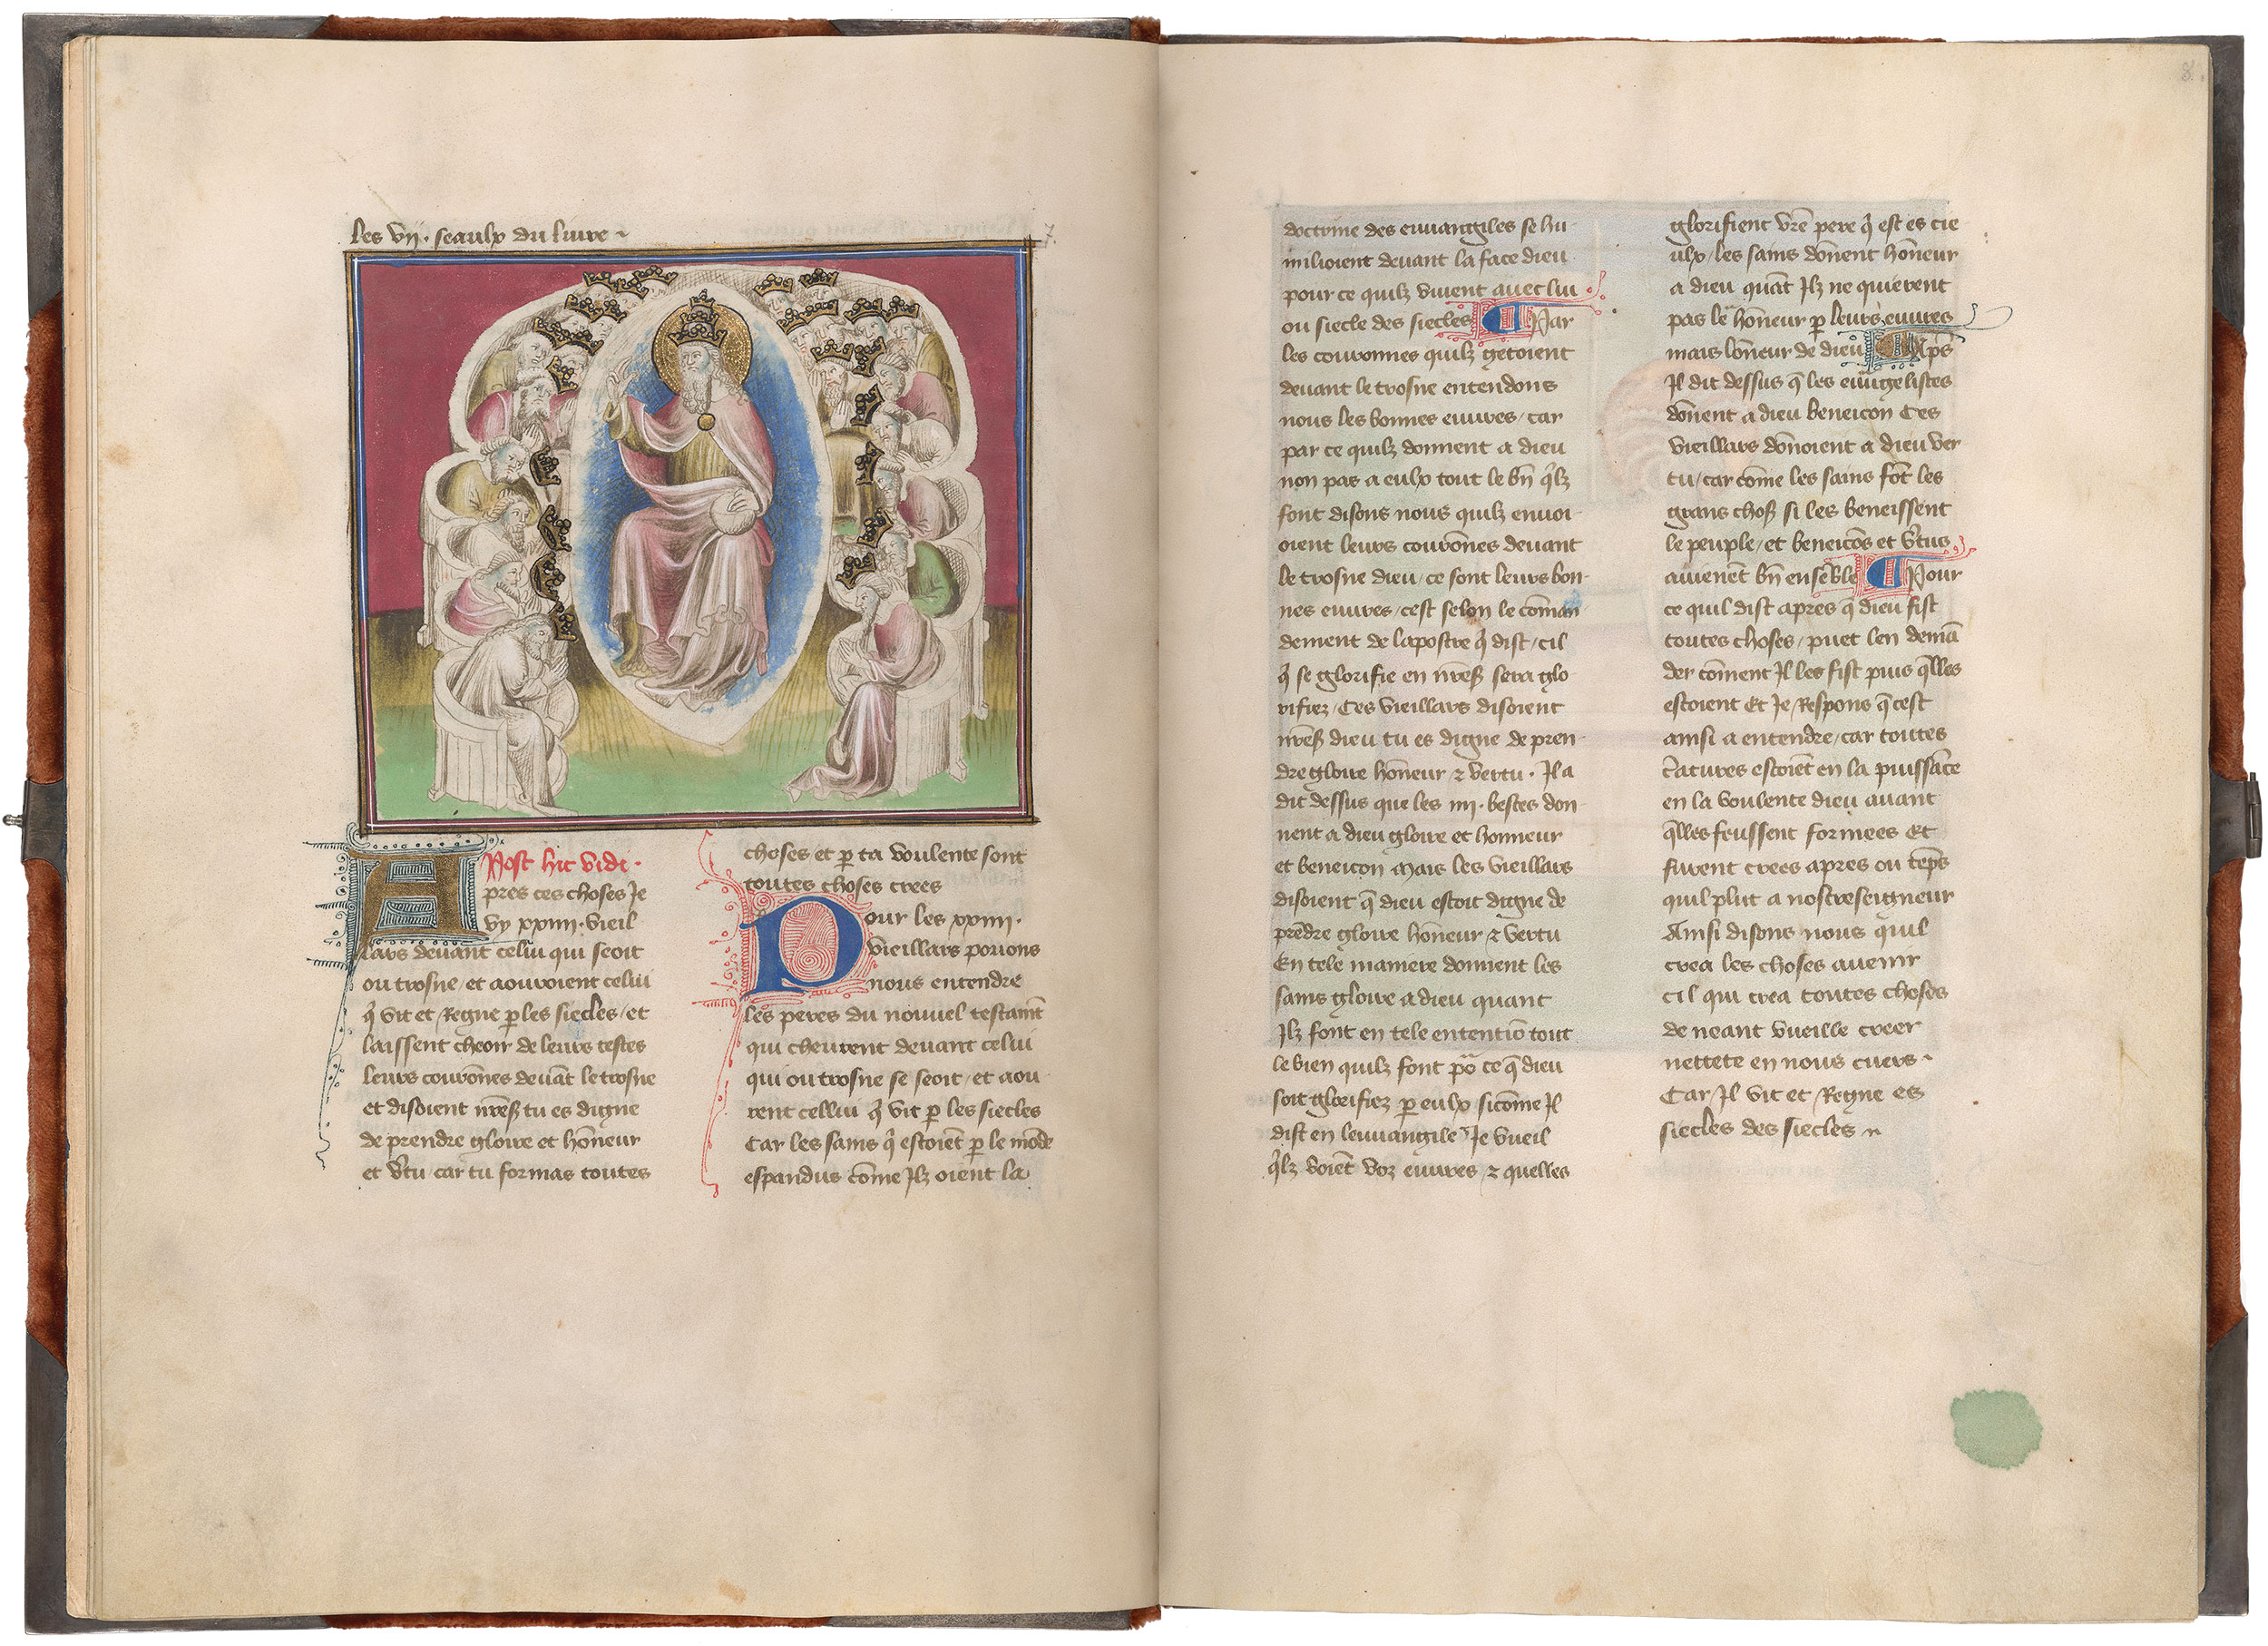 les vij · seaulx du livre ~
7.
Post hic vidi ·
Apres ces choses Je
vy xxiiij · vieil
lars devant celui qui seoit
ou trosne / et aouroient celui
q̇ vit et Regne p̱ les siecles / et
laissent cheoir de leurs testes
leurs courōnes devāt le trosne
et disoient nr̄e sß tu es digne
de prendre gloire et hōneur
et v̄tu / car tu formas toutes
choses et p̱ ta voulente sont
toutes choses crees
Pour les xxiiij ·
vieillars povons
nous entendre
les peres du nouvel testam̄t
qui cheurent devant celui
qui ou trosne se seoit / et aou
rent cellui q̇ vit p̱ les siecles
Car les sains q̇ estoiēt p̱ le mōde
espandus cōme Jlz oient la
8.
doctrine des euuangiles se hu
milioient devant la face dieu
pour ce quilz vivent avec lui ·
ou siecle des siecles ¶ Par
les couronnes quilz getoient
devant le trosne entendons
nous les bonnes euures / car
par ce quilz donnent a dieu
non pas a eulx tout le bn̄ q̇lz
font disons nous quilz envoi
oient leurs courōnes devant
le trosne dieu / ce sont leurs bon
nes euures / cest selon le cōman
dement de lapostre q̇ dist / cil
q̇ se glorifie en nr̄e sß sera glo
rifiez / Ces vieillars disoient
nr̄e sß dieu tu es digne de pren
dre gloire hōneur ⁊ vertu · Jl a
dit dessus que les iiij · bestes don
nent a dieu gloire et honneur
et beneicon Mais les vieillars
disoient q̄ dieu estoit digne de
prēdre gloire hōneur ⁊ vertu
En tele maniere donnent les
sains gloire a dieu quant
Jlz font en tele ententiō tout
le bien quilz font po᷑ ce q̄ dieu
soit glorifiez p̱ eulx sicōme Jl
dist en leuuangile Je vueil
q̇lz voiēt voz euures / ⁊ quelles
glorifient vr̄e pere q̇ est es cie
ulx / les sains dōnent hōneur
a dieu quāt Jlz ne quierent
pas le hōneur p̱ leurs euures
mais lōneur de dieu ¶ Ap̄s
Jl dit dessus q̄ les euūgelistes
dōnent a dieu beneicon Ces
vieillars dōnoient a dieu ver
tu / car cōme les sains fōt les
grans chosß si les beneissent
le peuple / et beneicōs et v̄tus
avienēt bn̄ ensēble ¶ Pour
ce quil dist apres q̄ dieu fist
toutes choses / puet len demā
der cōment Jl les fist puis q̄lles
estoient Et Je Respons q̄ cest
ainsi a entendre / car toutes
c̄atures estoiēt en la puissāce
en la voulente dieu avant
q̄lles feussent formees Et
furent crees apres ou tēps
quil plut a nostreseigneur
Ainsi disons nous quil
crea les choses avenir
cil qui crea toutes choses
de neant vueille creer
nettete en nous cuers ~
Car Jl vit et Regne es
siecles des siecles ~